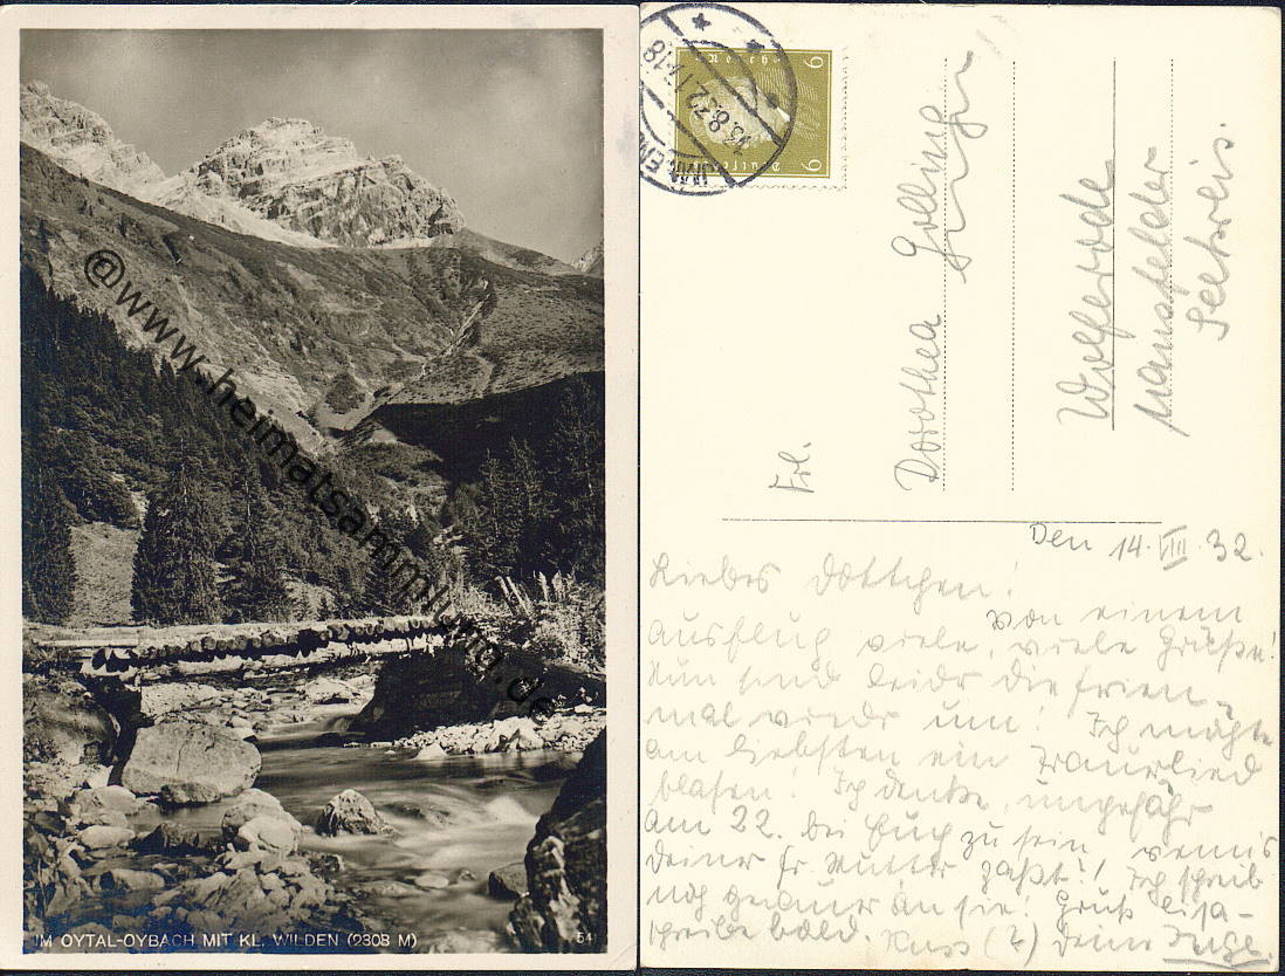 @www.heimatsammlung.de
IM OYTAL-OYBACH MIT KL. WILDEN (2308 M)
54
6 Reich 6
Deutsches
13.8.32.17-18
Frl.
Dorothea Golling
Wolferode
Mansfelder
Seekreis.
Den 14.VIII.32.
Liebes Dottchen!
Von einem
Ausflug viele, viele Grüße!
Nun sind leider die Ferien
mal wieder um! Ich möchte
am liebsten ein Trauerlied
blasen! Ich denke, ungefähr
am 22. bei Euch zu sein, wenn's
Deiner Fr. Mutter paßt!! Ich schreib
noch genauer an sie! Gruß Lisa-
schreibe bald. Kuss (?) Deine Inge.